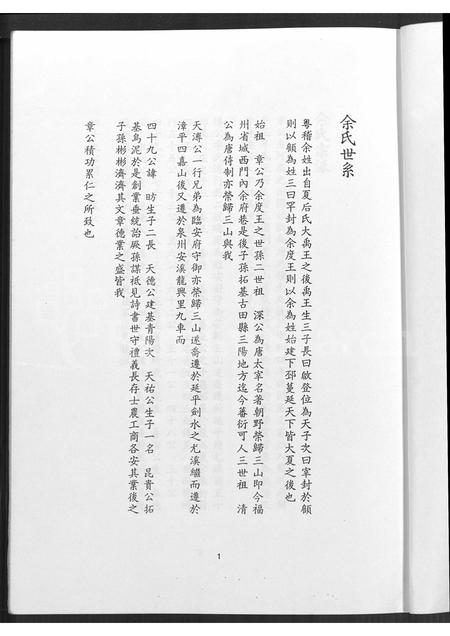 余氏世系
粵稽余姓出自夏后氏大禹王之後禹王生三子長曰啟登位為天子次曰宰封於顧
則以顧為姓三曰罕封為余度王則以余為姓始建下邳蔓延天下皆大夏之後也
始祖　章公乃余度王之世孫二世祖　深公為唐太宰名著朝野榮歸三山即今福
州省城西門內余府巷是後子孫拓基古田縣三陽地方迄今蕃衍可人三世祖　清
公為唐侍制亦榮歸三山與我
天溥公一行兄弟為臨安府守御亦榮歸三山遂喬遷於延平劍水之尤溪繼而遷於
漳平四嘉山後又遷於泉州安溪龍興里九車而
四十九公諱　昉生子二長　天德公建基青陽次　天祐公生子一名　昆貴公拓
基烏泥於是創業垂統詒厥孫謀祗見詩書世守禮義長存士農工商各安其業後之
子孫彬彬濟濟其文章德業之盛皆我
章公積功累仁之所致也
1